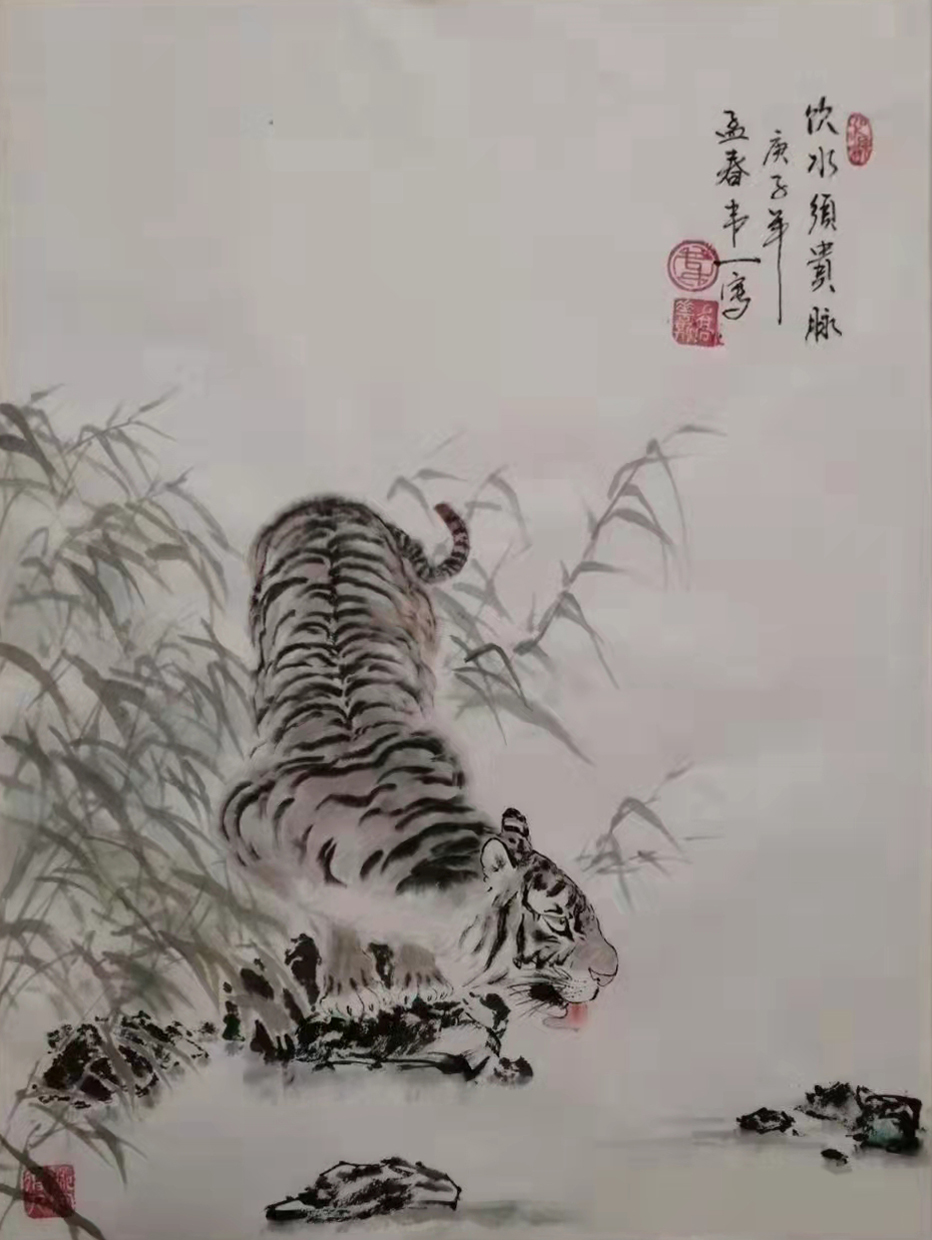 饮水须贵脉
庚子年
孟春韦一写